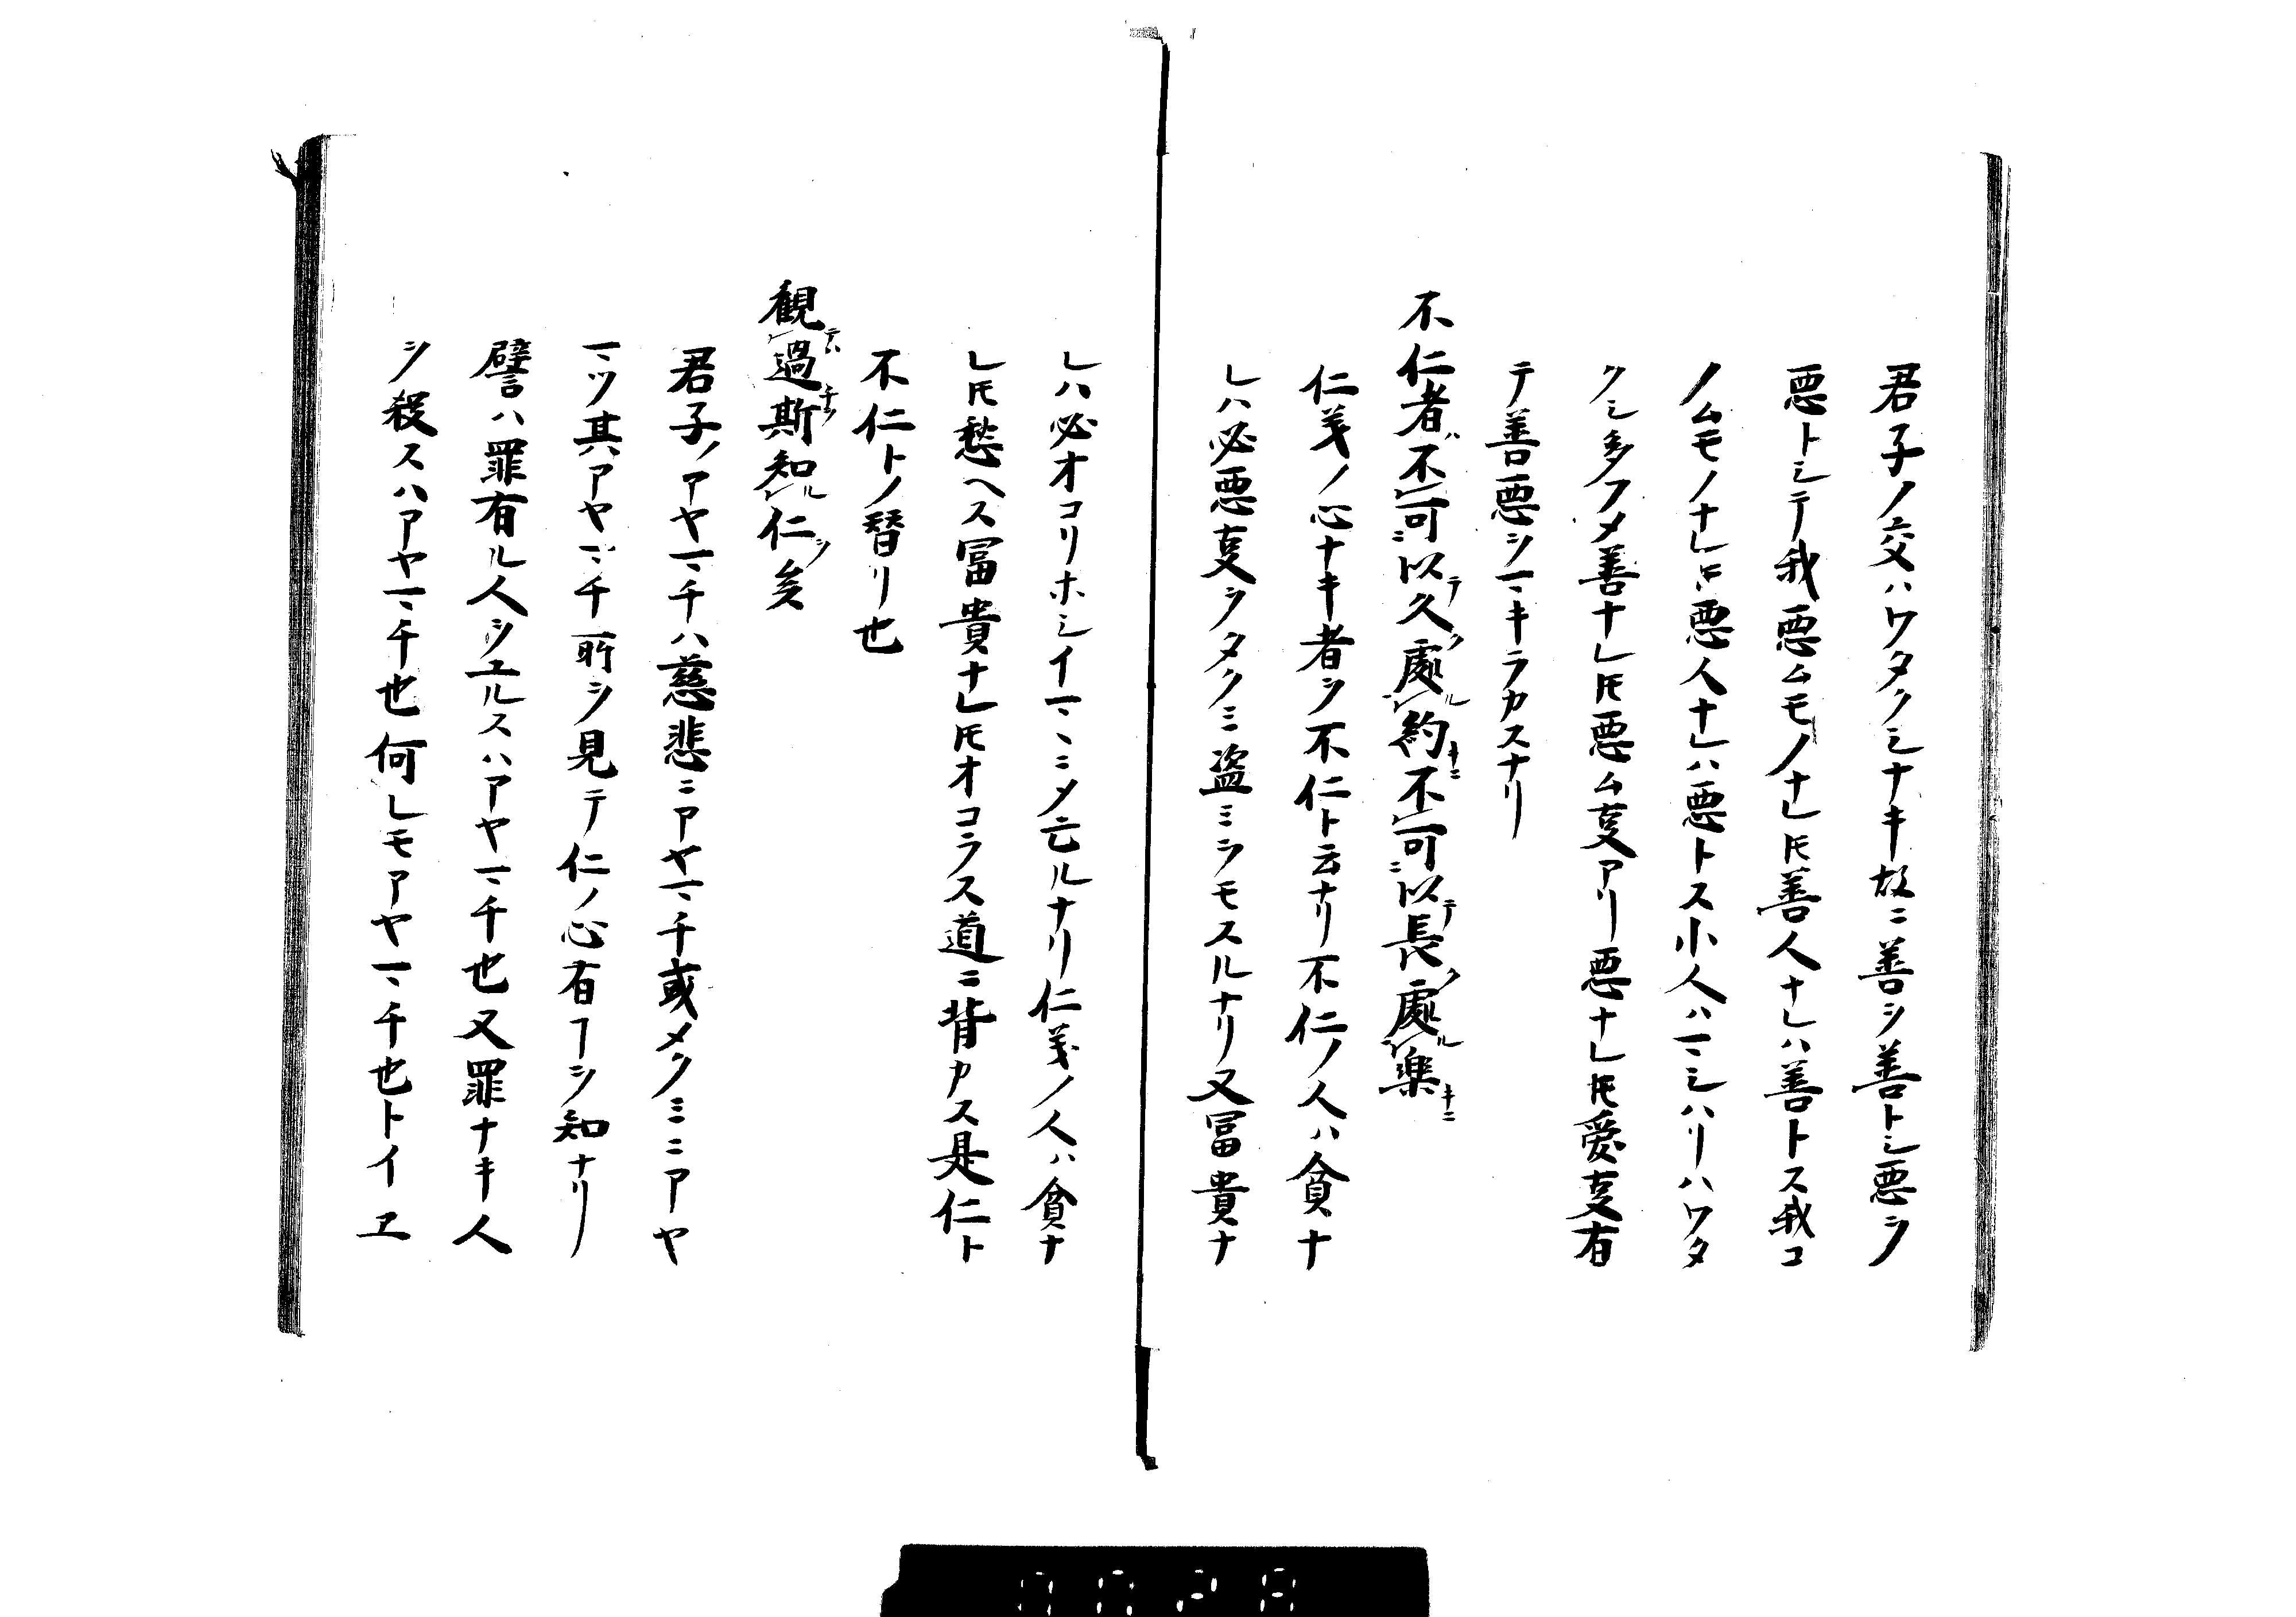 君子ノ交ハワタクシナキ故ニ善ヲ善トシ悪ヲ
悪トシテ我悪ムモノナレ𪜈善人ナレハ善トス我コ
ノムモノナレ𪜈悪人ナレハ悪トス小人ハマシハリハワタ
クシ多フメ善ナレ𪜈悪ム叓アリ悪ナレ𪜈愛叓有
テ善悪ヲマキラカスナリ
不仁者ハ不可ニ以テ久ク處ル約キニ不可ニ以テ長ク處ル楽キニ
仁義ノ心ナキ者ヲ不仁ト云ナリ不仁ノ人ハ貪ナ
レハ必悪叓ヲタクミ盗ミヲモスルナリ又冨貴ナ
レハ必オコリホシイマヽニメ亡ルナリ仁義ノ人ハ貪ナ
レ𪜈愁ヘス冨貴ナレ𪜈オコラス道ニ背カス是仁ト
不仁トノ替リ也
観テハ過チヲ斯知ル仁ヲ矣
君子ノアヤマチハ慈悲ニアヤマチ或メクミニアヤ
マツ其アヤマチ所ヲ見テ仁ノ心有ヿヲ知ナリ
譬ハ罪有ル人ヲユルスハアヤマチ也又罪ナキ人
ヲ殺スハアヤマチ也何レモアヤマチ也トイヱ